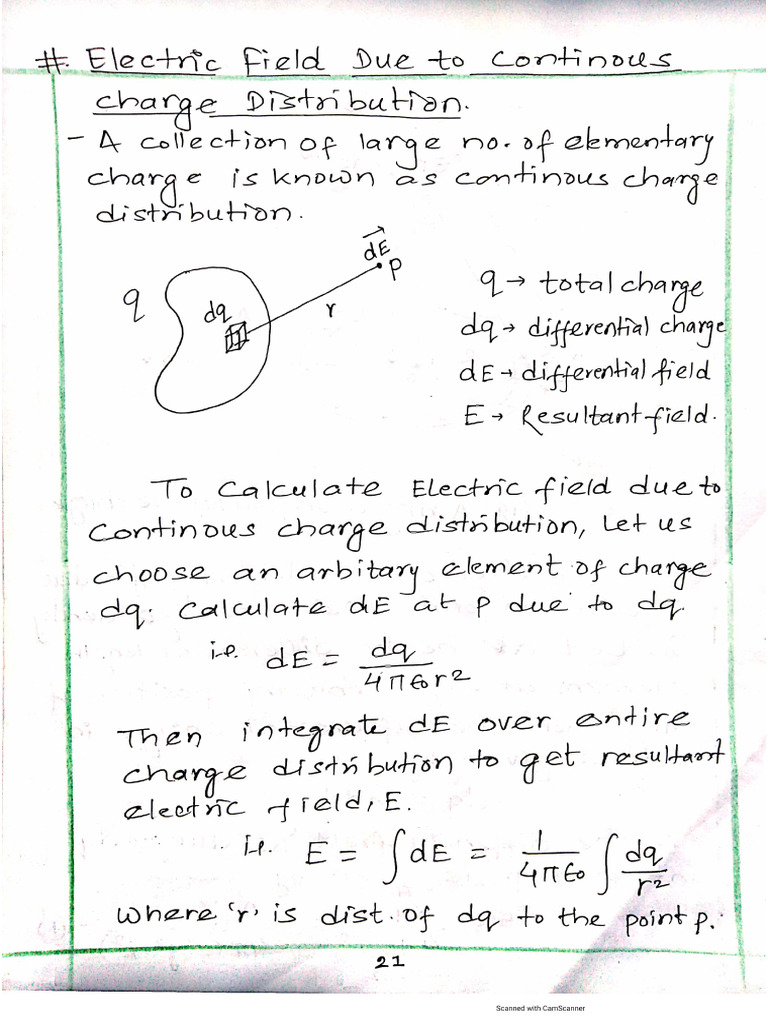 #. Electric Field Due to Continous
charge Distribution.
- A collection of large no. of elementary
charge is known as continous charge
distribution.
q
dq
r
dE
P
q → total charge
dq → differential charge
dE → differential field
E → Resultant field.
To Calculate Electric field due to
Continous charge distribution, Let us
choose an arbitary element of charge
dq. Calculate dE at P due to dq.
i.e. dE = dq / 4πϵ0r²
Then integrate dE over entire
charge distribution to get resultant
electric field, E.
i.e. E = ∫dE = 1/4πϵ0 ∫ dq/r²
where 'r' is dist. of dq to the point p.
21
Scanned with CamScanner